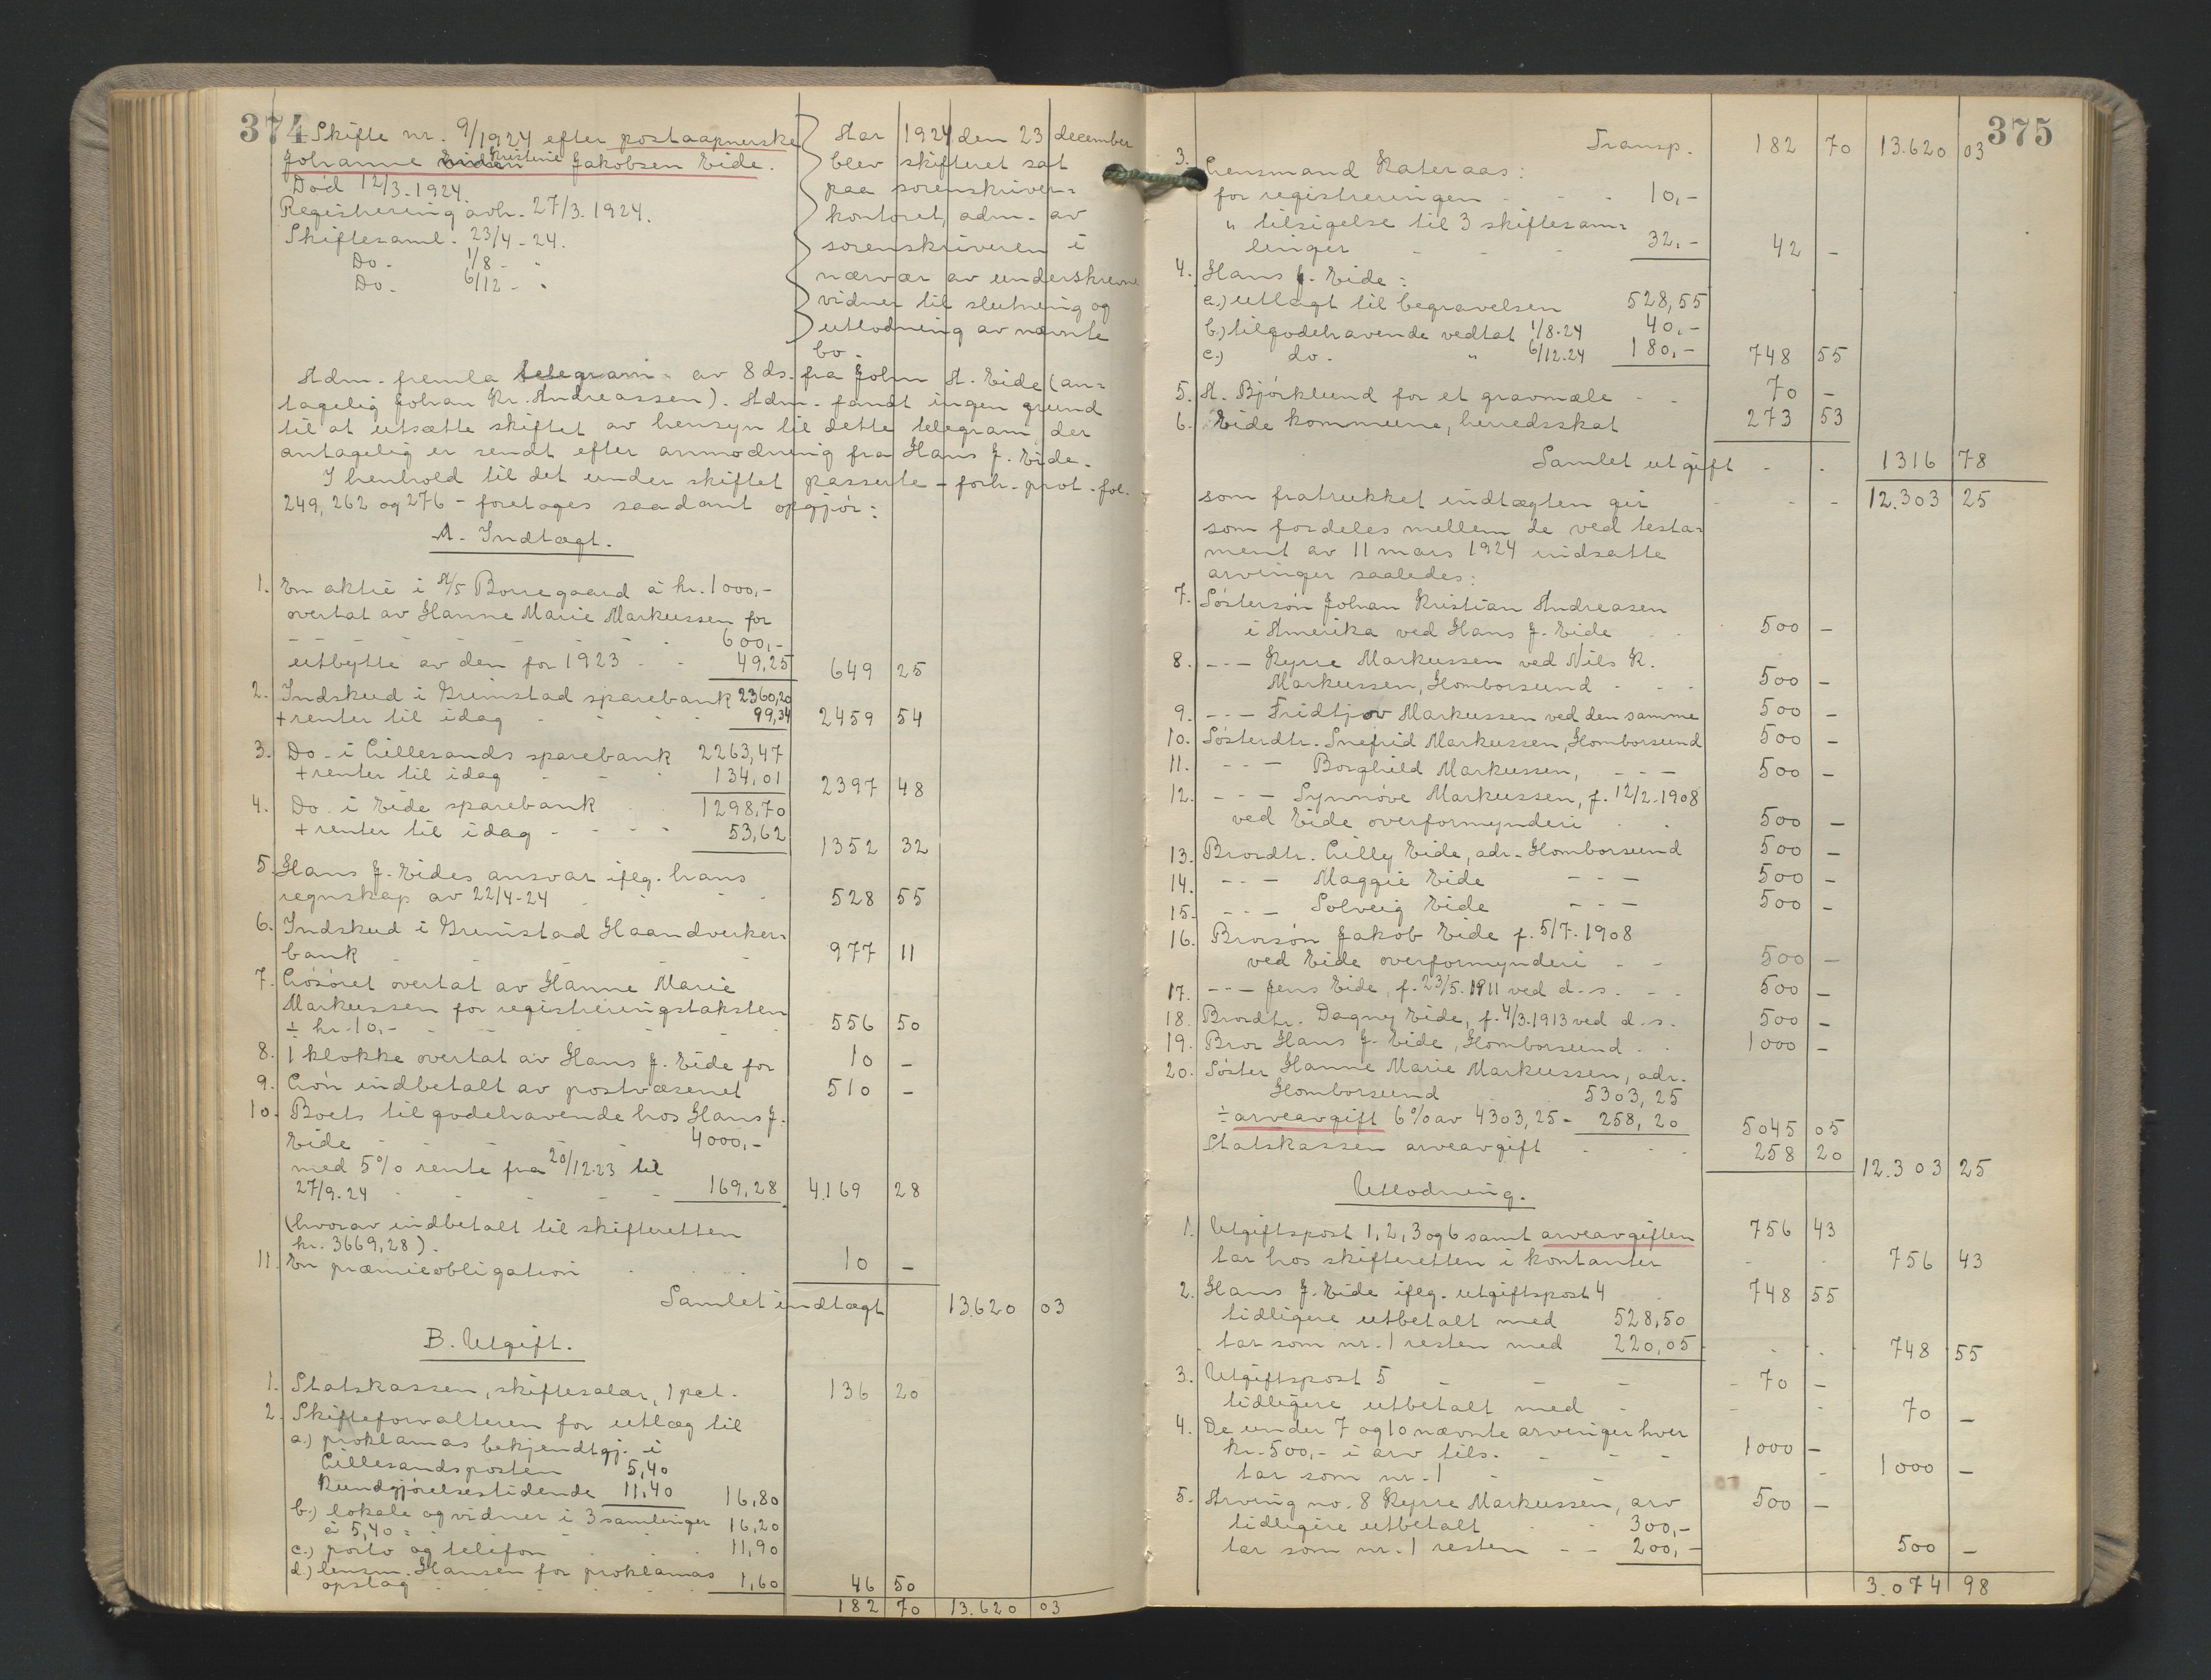 374
Skifte nr. 9/1924 efter postaapnerske
Johanne Kristine Jakobsen Eide.
Død 12/3-1924.
Registrering avh. 27/3-1924.
Skiftesaml. 23/4-24.
Do. 1/8 - "
Do. 6/12 - "
Aar 1924 den 23 december
blev skifteret sat
paa sorenskriver-
kontoret, adm. av
sorenskriveren i
nærvær av underskrevne
vidner til slutning og
utlodning av nævnte
bo.
Adm. fremla telegram av 8 ds. fra John A. Eide (an-
tagelig Johan Kr. Andreassen). Adm. fandt ingen grund
til at utsætte skiftet av hensyn til dette telegram, der
antagelig er sendt efter anmodning fra Hans J. Eide.
I henhold til det under skiftet passerte - forh. prot. fol.
249, 262 og 276 - foretages saadant opgjør:
A. Indtægt.
1. En aktie i A/S Borregaard à kr. 1000,-
overtat av Hanne Marie Markussen for
- - - - - - 600,-
utbytte av den for 1923 - - 49,25 649 25
2. Indskud i Grimstad sparebank 2360,20
+ renter til idag - - - 99,34 2459 54
3. Do. i Lillesands sparebank 2263,47
+ renter til idag - - - 134,01 2397 48
4. Do. i Eide sparebank - - 1298,70
+ renter til idag - - - - 53,62 1352 32
5. Hans J. Eides ansvar ifлg. hans
regnskap av 22/4-24 - - - 528 55
6. Indskud i Grimstad Haandverker-
bank - - - - - 977 11
7. Løsøret overtat av Hanne Marie
Markussen for registreringstaksten
÷ kr. 10,- - - - - 556 50
8. 1 klokke overtat av Hans J. Eide for 10 -
9. Løn indbetalt av postvæsenet 510 -
10. Boets tilgodehavende hos Hans J.
Eide - - - - 4000,-
med 5% rente fra 20/12-23 til
27/9-24 - - - - 169,28 4.169 28
(hvorav indbetalt til skifteretten
kr. 3669,28).
11. En præmieobligation - - - 10 -
Samlet indtægt 13.620 03
B. Utgift.
1. Statskassen, skiftesalær, 1 pct. 136 20
2. Skifteforvalteren for utlæg til
a.) proklamas bekjendtgj. i
Lillesandsposten 5,40
Kundgjørelsestidende 11,40 16,80
b.) lokale og vidner i 3 samlinger
à 5,40 = - - - 16,20
c.) porto og telefon - - - 11,90
d.) lensm. Hansen for proklamas
opslag - - - - 1,60 46 50
182 70 13.620 03
375
Transp. 182 70 13.620 03
3. Lensmand Kateraas:
for registreringen - - - 10,-
" tilsigelse til 3 skiftesam-
linger - - - 32,- 42 -
4. Hans J. Eide:
a.) utlagt til begravelsen 528,55
b.) tilgodehavende vedtat 1/8-24 40,-
c.) do. " 6/12-24 180,- 748 55
5. A. Bjørklund for et gravmæle - - 70 -
6. Eide kommune, herredsskat 273 53
Samlet utgift - - 1316 78
som fratrukket indtægten gir - - - 12.303 25
som fordeles mellem de ved testa-
ment av 11 mars 1924 indsatte
arvinger saaledes:
7. Søstersøn Johan Kristian Andreasen
i Amerika ved Hans J. Eide - - 500 -
8. - - - Kyrre Markussen ved Nils K.
Markussen, Homborsund - - - 500 -
9. - - - Fridtjov Markussen ved den samme 500 -
10. Søsterdtr. Snefrid Markussen, Homborsund 500 -
11. - - - Borghild Markussen, - - - 500 -
12. - - - Synnøve Markussen, f. 12/2-1908
ved Eide overformynderi - - 500 -
13. Brordtr. Lilly Eide, adr. Homborsund 500 -
14. - - - Maggie Eide - - - 500 -
15. - - - Solveig Eide - - - 500 -
16. Brorsøn Jakob Eide f. 5/7-1908
ved Eide overformynderi - - 500 -
17. - - - Jens Eide, f. 23/5-1911 ved d. s. - - 500 -
18. Brordtr. Dagny Eide, f. 4/3-1913 ved d. s. 500 -
19. Bror Hans J. Eide, Homborsund - - 1000 -
20. Søster Hanne Marie Markussen, adr.
Homborsund 5303,25
÷ arveavgift 6% av 4303,25 - 258,20 5045 05
Statskassen arveavgift - - - 258 20 12.303 25
Utlodning.
1. Utgiftspost 1, 2, 3 og 6 samt arveavgiften 756 43
tar hos skifteretten i kontanter - - 756 43
2. Hans J. Eide ifлg. utgiftspost 4 748 55
tidligere utbetalt med 528,50
tar som nr. 1 resten med 220,05 - - 748 55
3. Utgiftspost 5 - - - 70 -
tidligere utbetalt med - - - 70 -
4. De under 7 og 10 nævnte arvinger hver
kr. 500,- i arv tils. - - - 1000 -
tar som nr. 1 - - - 1000 -
5. Arving no. 8 Kyrre Markussen, arv 500 -
tidligere utbetalt - - 300,-
tar som nr. 1 resten - - 200,- 500 -
3.074 98